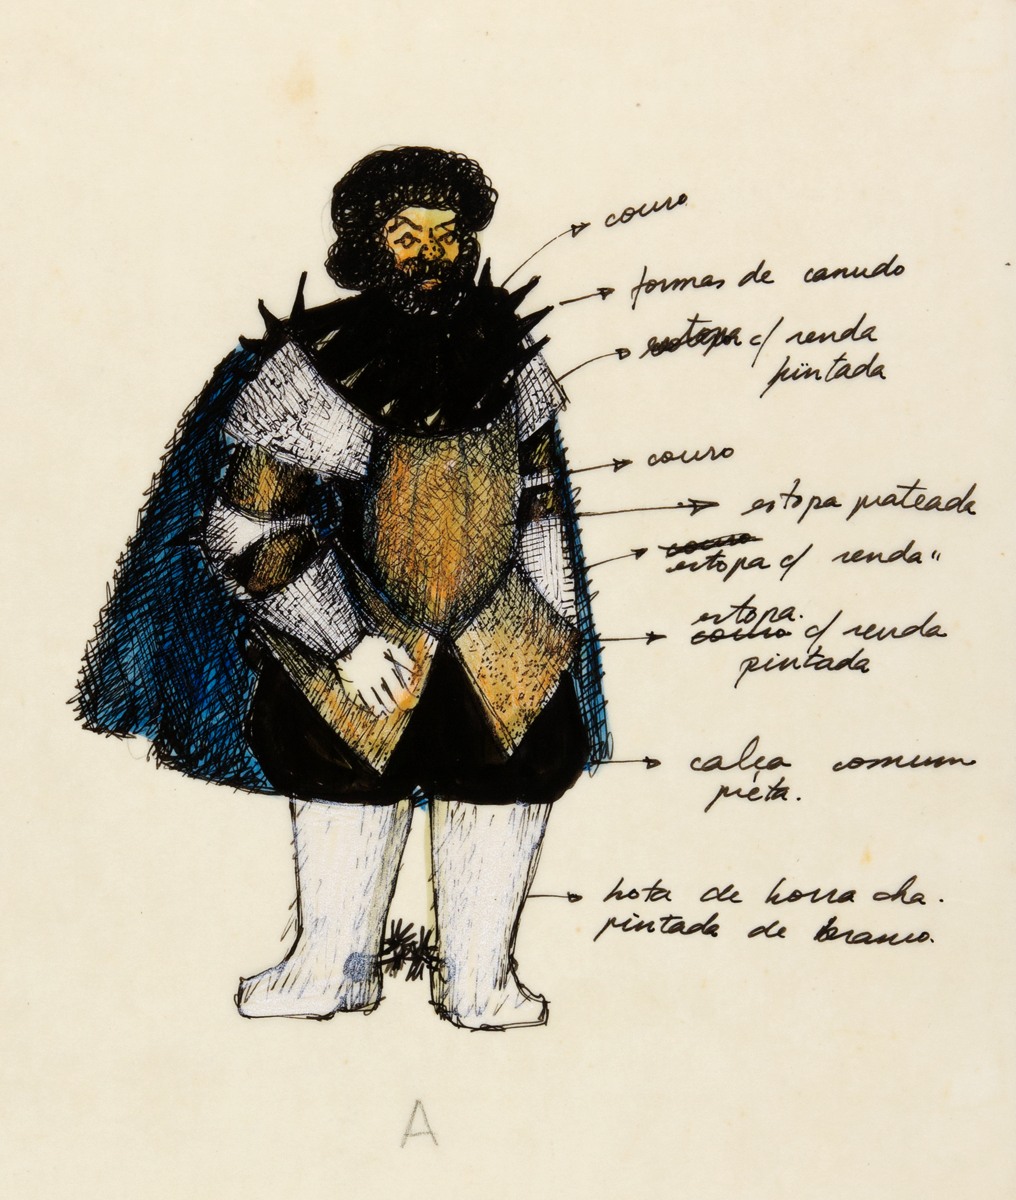 couro
formas de canudo
estopa c/ renda
pintada
couro
estopa prateada
couro
estopa c/ renda "
estopa.
couro c/ renda
pintada
calça comum
preta.
bota de borracha.
pintada de branco.
A